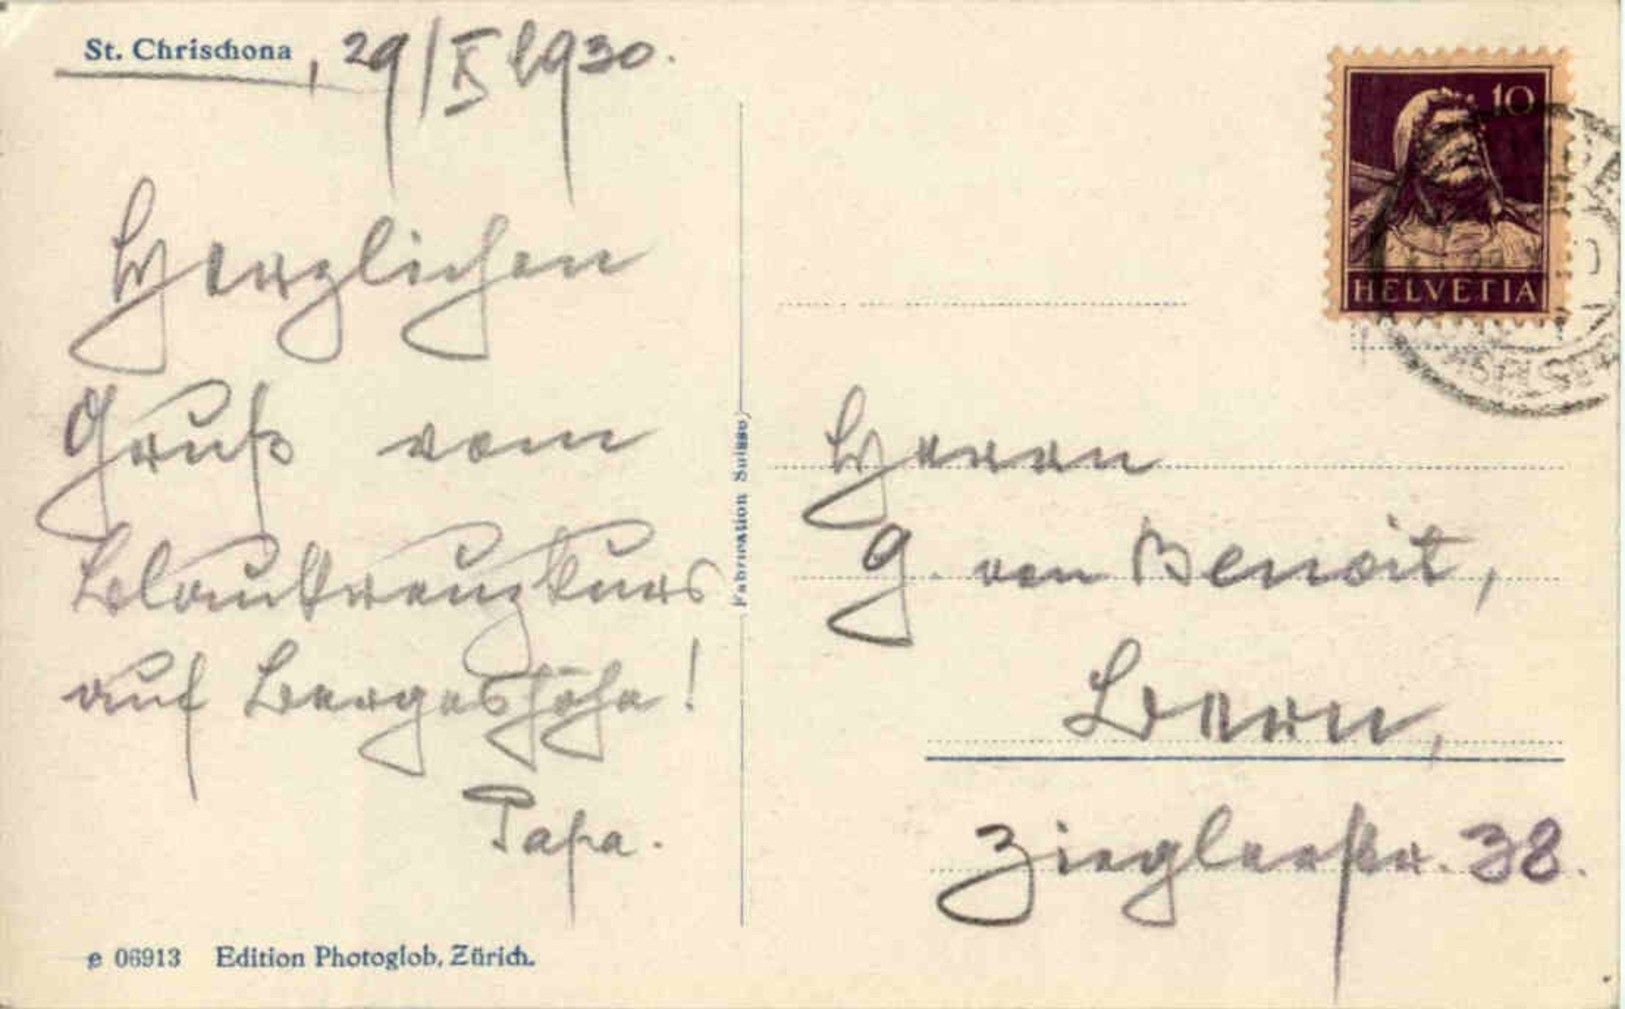 St. Chrischona, 29/X 1930.
Herzlichen
Gruß vom
Blaukreuzkurs
auf Bergeshöhe!
Papa.
e 06913 Edition Photoglob, Zürich.
Fabrication Suisse
10
HELVETIA
Herrn
G. von Benoit,
Bern,
Zieglerstr. 38.